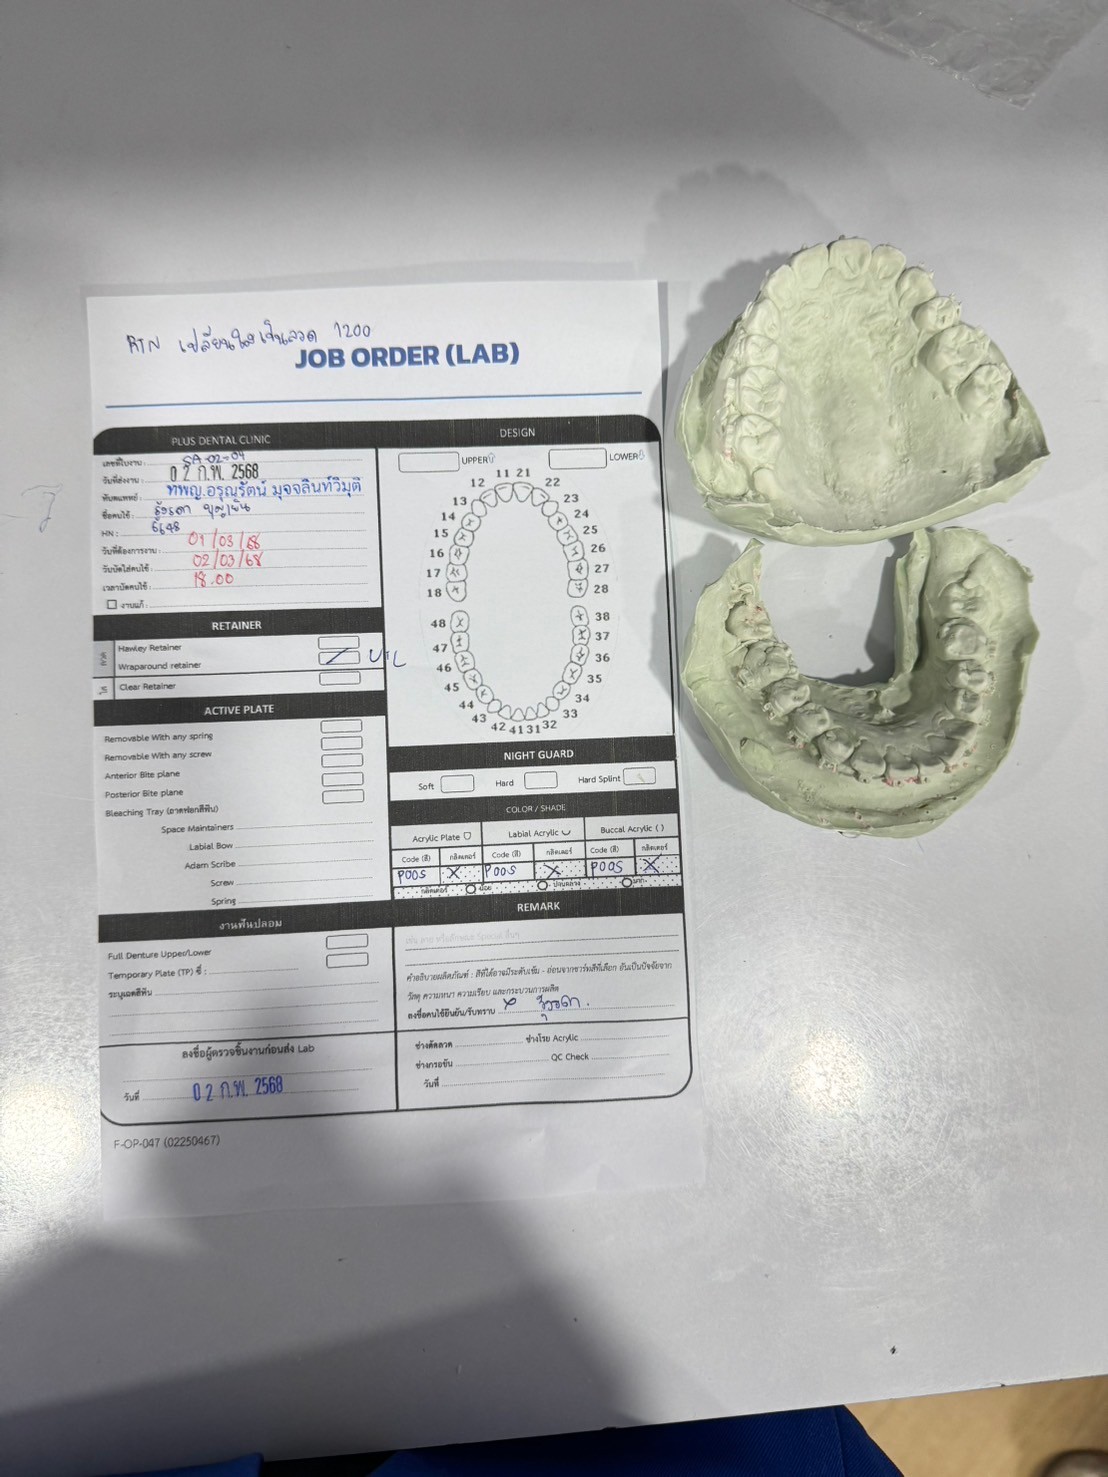 RTN เปลี่ยนใส เป็นลวด 1200
JOB ORDER (LAB)
PLUS DENTAL CLINIC
เลขที่ใบงาน : SA-02-04
วันที่ส่งงาน : 02 ก.พ. 2568
ทันตแพทย์ : ทพญ.อรุณรัตน์ มุจจลินท์วิมุติ
ชื่อคนไข้ :
HN : 6648
วันที่ต้องการงาน : 01/03/68
วันนัดใส่คนไข้ : 02/03/68
เวลานัดคนไข้ : 18.00
งานแก้ :
RETAINER
Hawley Retainer
Wraparound retainer U+L
Clear Retainer
ACTIVE PLATE
Removable With any spring
Removable With any screw
Anterior Bite plane
Posterior Bite plane
Bleaching Tray (ถาดฟอกสีฟัน)
Space Maintainers
Labial Bow
Adam Scribe
Screw
Spring
งานฟันปลอม
Full Denture Upper/Lower
Temporary Plate (TP) ซี่ :
ระบุเฉดสีฟัน
ลงชื่อผู้ตรวจชิ้นงานก่อนส่ง Lab
วันที่ 02 ก.พ. 2568
F-OP-047 (02250467)
DESIGN
UPPER LOWER
11 21
12 22
13 23
14 24
15 25
16 26
17 27
18 28
48 38
47 37
46 36
45 35
44 34
43 33
42 41 31 32
NIGHT GUARD
Soft Hard Hard Splint
COLOR / SHADE
Acrylic Plate Labial Acrylic Buccal Acrylic ( )
Code (สี) กลิตเตอร์ Code (สี) กลิตเตอร์ Code (สี) กลิตเตอร์
P005 X P005 X P005 X
กลิตเตอร์ น้อย ปานกลาง มาก
REMARK
คำอธิบายผลิตภัณฑ์ : สีที่ได้อาจมีระดับเข้ม - อ่อนจากชาร์ทสีที่เลือก อันเป็นปัจจัยจาก
วัสดุ ความหนา ความเรียบ และกระบวนการผลิต
ลงชื่อคนไข้ยืนยัน/รับทราบ
ช่างดัดลวด ช่างโรย Acrylic
ช่างกรอขัน QC Check
วันที่